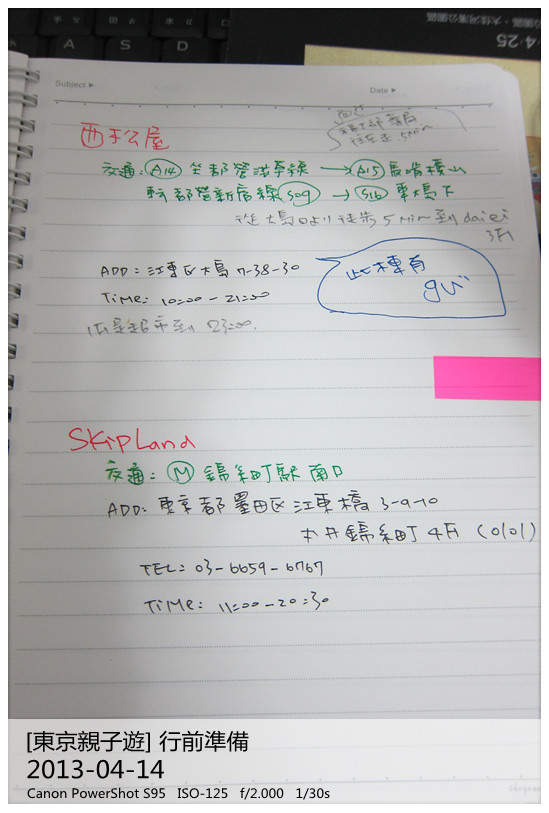 4.25
A S D
Subject ▶ Date ▶
西松屋
交通：A14 坐都營淺草線 → A15 馬喰橫山
轉都營新宿線 S09 → S16 東大島下
從大島口より徒步5min到daiei
3F
ADD：江東区大島7-38-30
Time：10:00-21:00
但是超市到23:00.
此棟有
gu
SKipLand
交通：M 錦糸町駅 南口
ADD：東京都墨田区江東橋3-9-10
丸井錦糸町4F（0101）
TEL：03-6659-6767
Time：11:00-20:30
[東京親子遊] 行前準備
2013-04-14
Canon PowerShot S95 ISO-125 f/2.000 1/30s